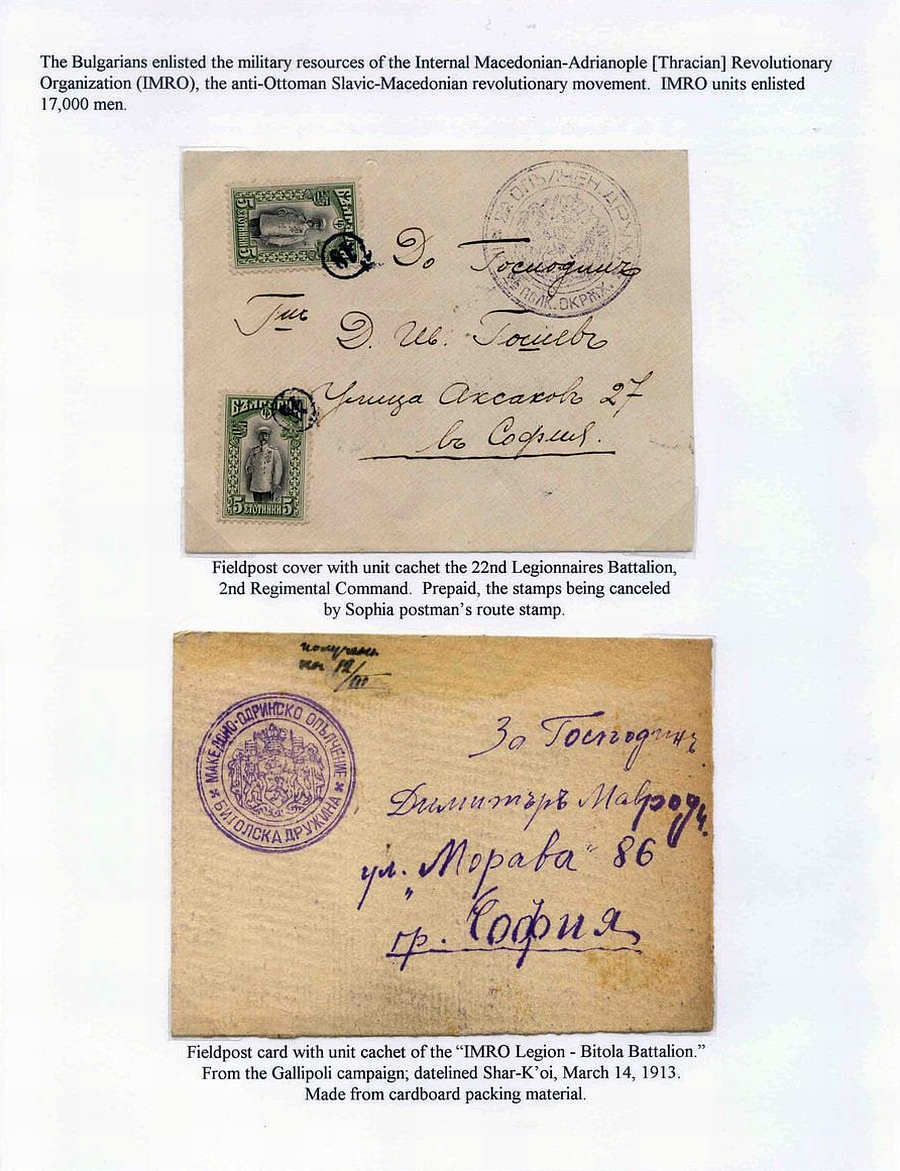 The Bulgarians enlisted the military resources of the Internal Macedonian-Adrianople [Thracian] Revolutionary
Organization (IMRO), the anti-Ottoman Slavic-Macedonian revolutionary movement.  IMRO units enlisted
17,000 men.
БЪЛГАРИЯ
5 СТОТИНКИ 5
ОПЪЛЧЕН. ДРУЖ
ПОЛК. ОКРѪЖ.
До Господинъ
Гнъ
Д. Ив. Гошевъ
Улица Аксаковъ 27
въ София.
БЪЛГАРИЯ
5 СТОТИНКИ 5
Fieldpost cover with unit cachet the 22nd Legionnaires Battalion,
2nd Regimental Command.  Prepaid, the stamps being canceled
by Sophia postman's route stamp.
на 12/III
МАКЕДОНО-ОДРИНСКО ОПЪЛЧЕНИЕ
БИТОЛСКА ДРУЖИНА
За Господинъ
Димитъръ
ул. „Морава" 86
гр. София
Fieldpost card with unit cachet of the "IMRO Legion - Bitola Battalion."
From the Gallipoli campaign; datelined Shar-K'oi, March 14, 1913.
Made from cardboard packing material.